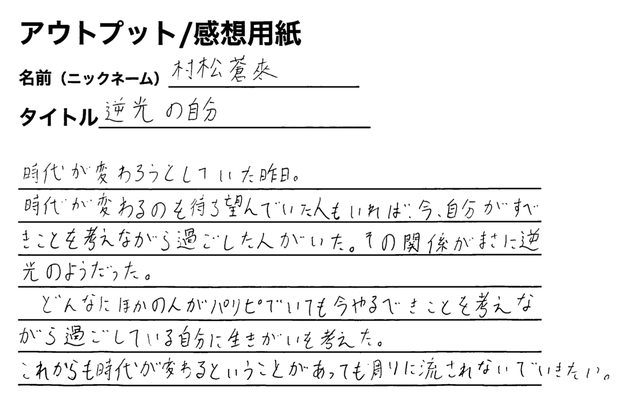 アウトプット/感想用紙
名前（ニックネーム） 村松蒼來
タイトル 逆光の自分
時代が変わろうとしていた昨日。
時代が変わるのを待ち望んでいた人もいれば、今、自分がすべ
きことを考えながら過ごした人がいた。その関係がまさに逆
光のようだった。
どんなにほかの人がパリピでいても今やるべきことを考えな
がら過ごしている自分に生きがいも考えた。
これからも時代が変わるということがあっても周りに流されないでいきたい。